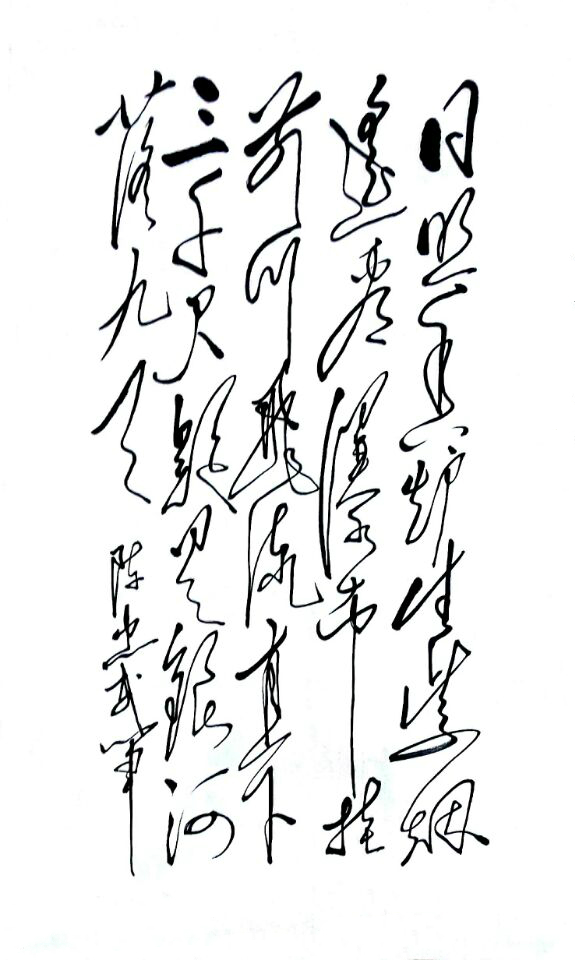 日照香炉生紫烟
遥看瀑布挂
前川飞流直下
三千尺疑是银河
落九天
陈忠武笔